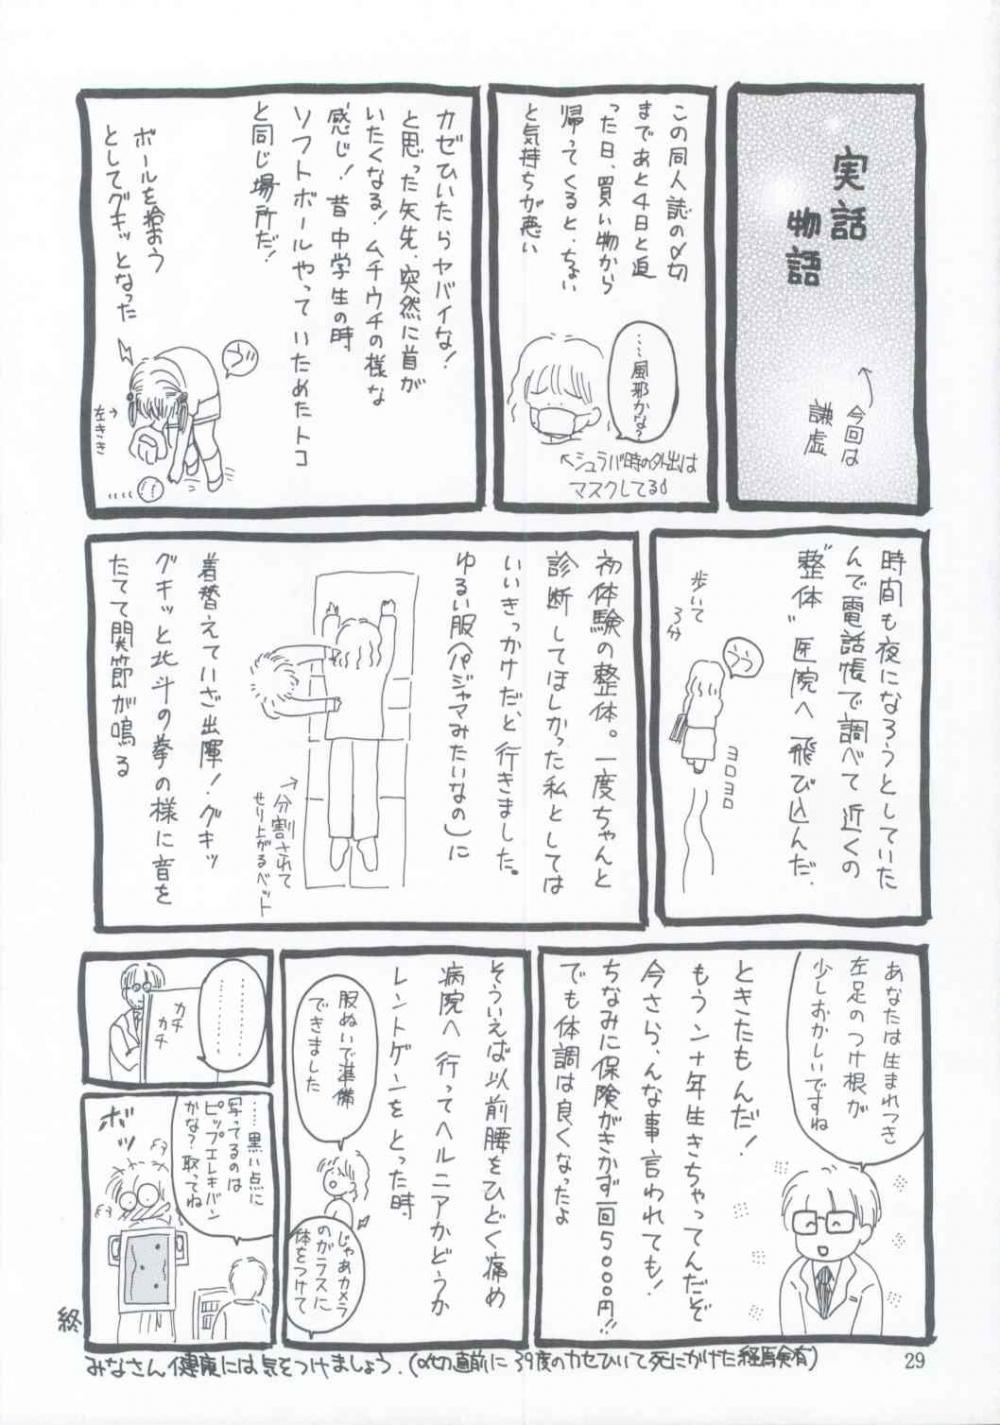 実話
物語
←今回は
謙虚
この同人誌の〆切
まであと4日と迫
った日、買い物から
帰ってくると、ちょい
と気持ちが悪い
……風邪かな?
←シュラバ時の外出は
マスクしてる
カゼひいたらヤバイな!
と思った矢先、突然に首が
いたくなる!ムチウチの様な
感じ!昔中学生の時
ソフトボールやっていためたトコ
と同じ場所だ!
ボールを拾おう
としてグキッとなった
ゔ
左きき→
時間も夜になろうとしていた
んで電話帳で調べて近くの
"整体"医院へ飛び込んだ.
歩いて
3分
うう
ヨロヨロ
初体験の整体。一度ちゃんと
診断してほしかった私としては
いいきっかけだ、と行きました。
ゆるい服(パジャマみたいなの)に
→分割されて
せり上がるベット
着替えていざ出陣!グキッ
グキッと北斗の拳の様に音を
たてて関節が鳴る
あなたは生まれつき
左足のつけ根が
少しおかしいですね
ときたもんだ!
もうン十年生きちゃってんだぞ
今さら、んな事言われても!
ちなみに保険がきかず一回5000円!!
でも体調は良くなったよ
そういえば以前腰をひどく痛め
病院へ行ってヘルニアかどうか
レントゲンをとった時
服ぬいで準備
できました
じゃあカメラ
のガラスに
体をつけて
…………
カチ
カチ
……黒い点に
写ってるのは
ピップエレキバン
かな?取ってね
ボッ
終
みなさん健康には気をつけましょう.(〆切直前に39度のカゼひいて死にかけた経験有)
29